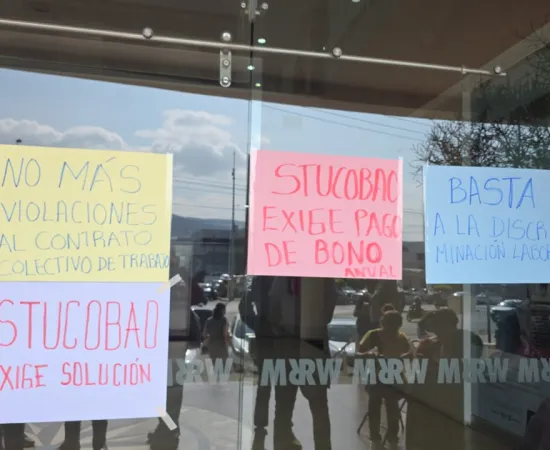 NO MÁS
VIOLACIONES
AL CONTRATO
COLECTIVO DE TRABAJO
STUCOBAO
EXIGE SOLUCIÓN
STUCOBAO
EXIGE PAGO
DE BONO
ANUAL
BASTA
A LA DISCRI
MINACIÓN LABORAL